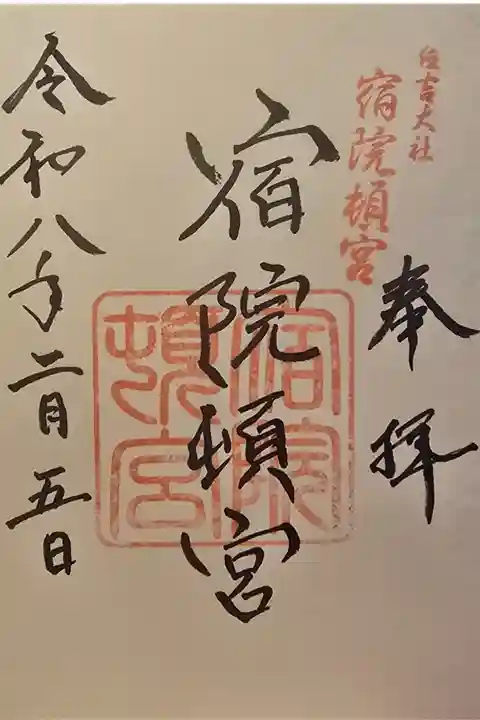 住吉大社
宿院頓宮
奉拝
宿院頓宮
宿院
頓宮
令和八年二月五日